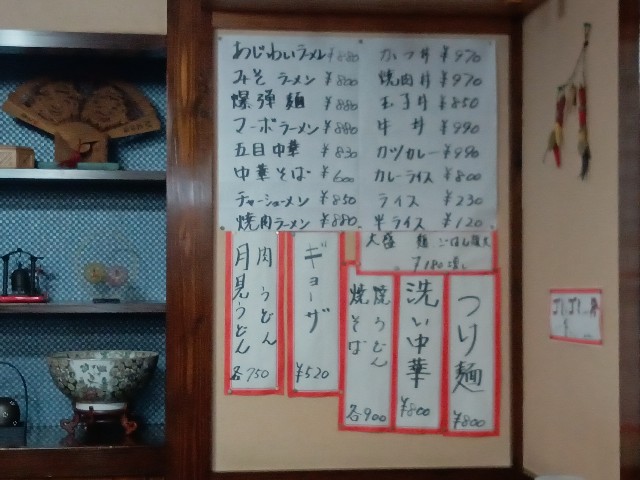 あじわいラーメン ¥880
みそ ラーメン ¥800
爆弾麺 ¥880
マーボラーメン ¥880
五目中華 ¥830
中華そば ¥600
チャーシューメン ¥850
焼肉ラーメン ¥880
かつ丼 ¥970
焼肉丼 ¥970
玉子丼 ¥850
牛丼 ¥990
カツカレー ¥990
カレーライス ¥800
ライス ¥230
半ライス ¥120
大盛 麺 ごはん
¥180
肉うどん
月見うどん
各750
ギョーザ
¥520
焼うどん
焼そば
各900
洗い中華
¥800
つけ麺
¥800